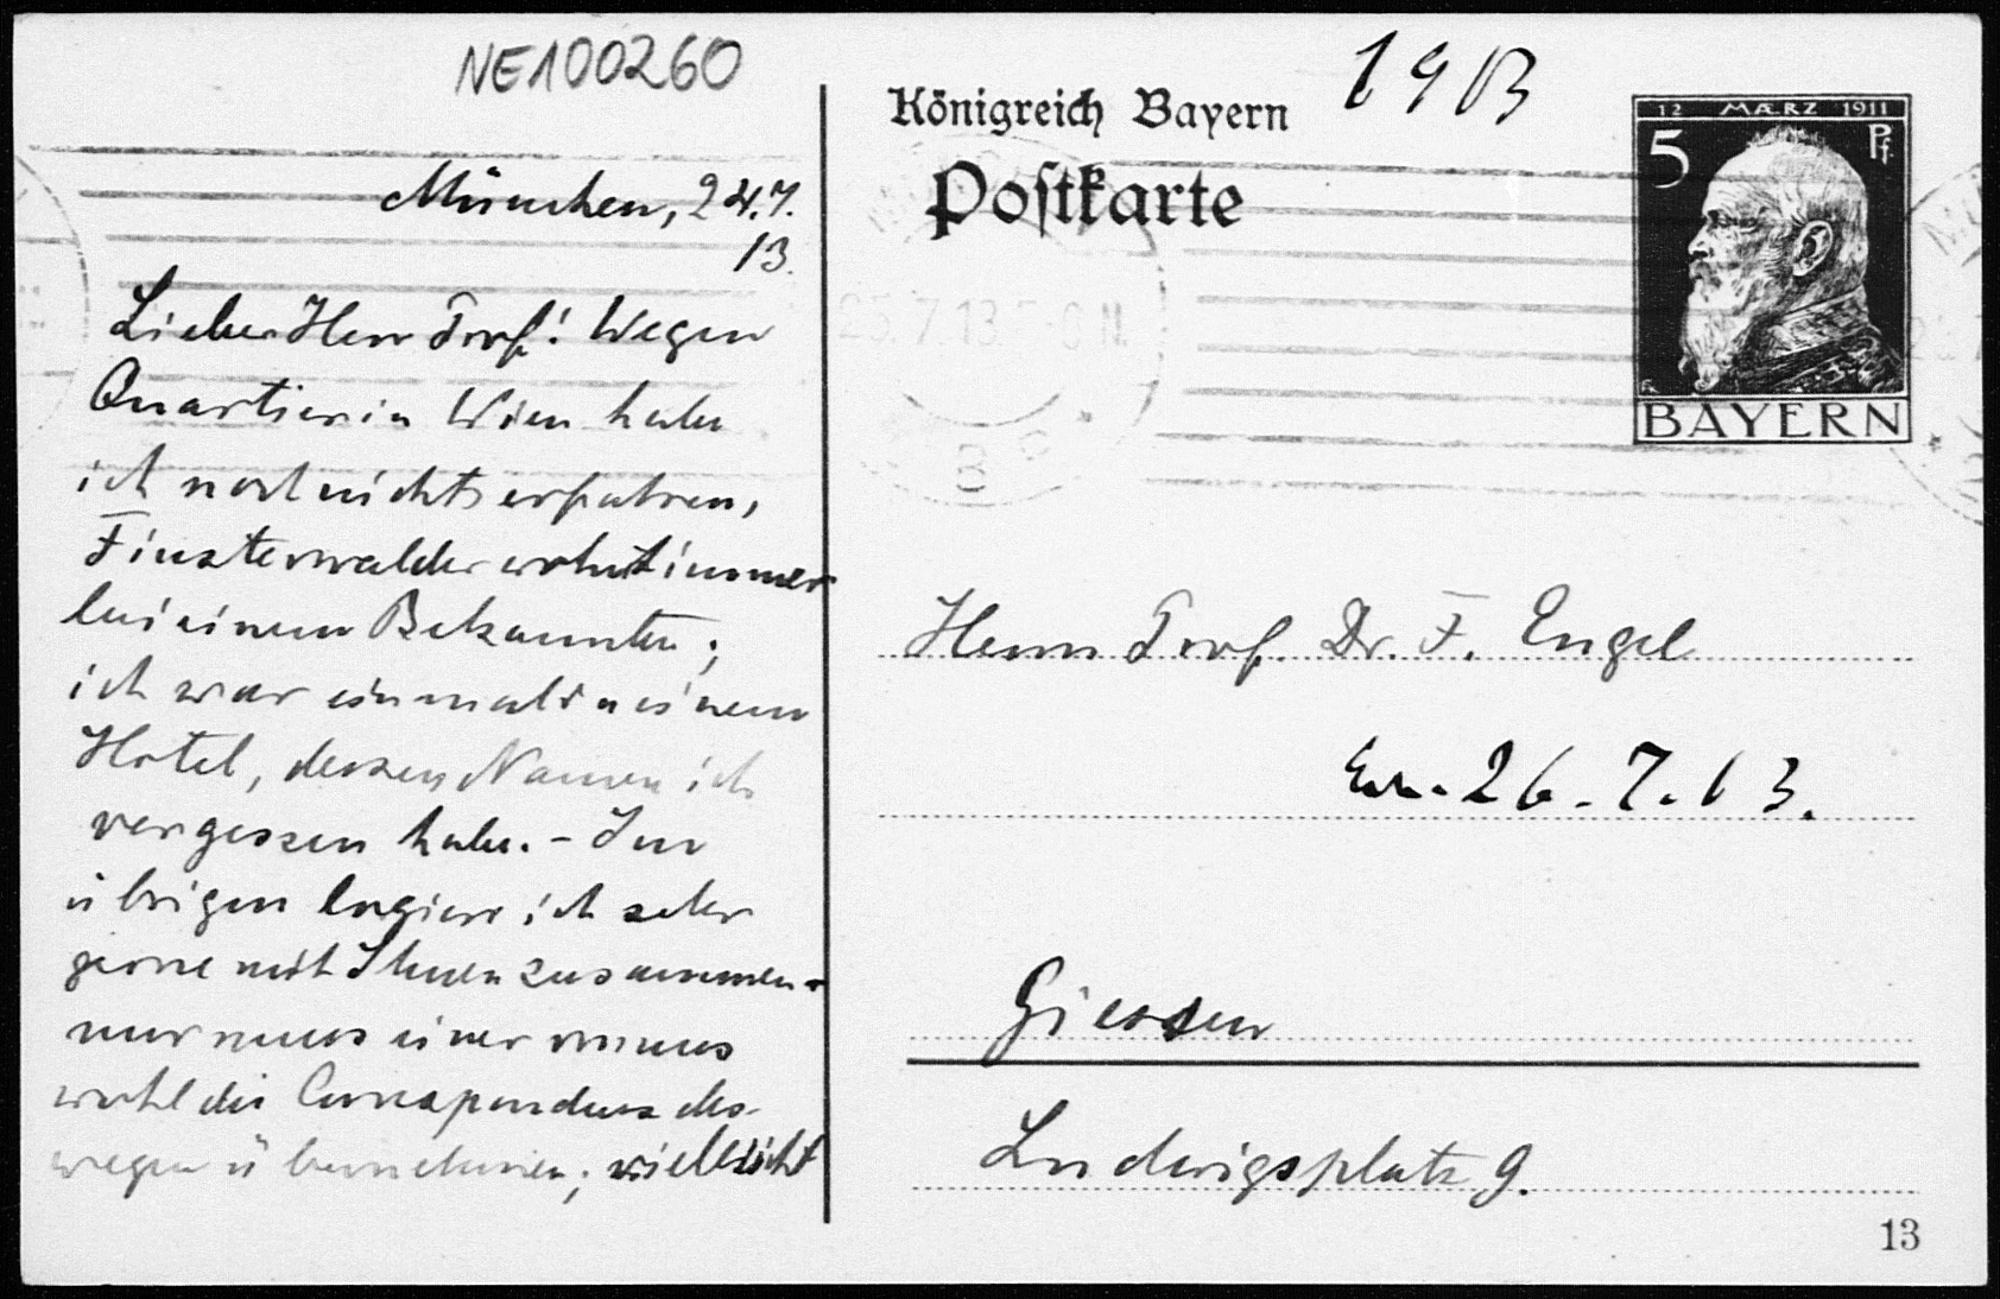 NE100260
München, 24.7.
13.
Lieber Herr Prof.! Wegen
Quartier in Wien habe
ich noch nichts erfahren,
Finsterwalder wohnt immer
bei einem Bekannten;
ich war einmal in einem
Hotel, dessen Namen ich
vergessen habe. – Im
übrigen logiere ich sehr
gerne mit Ihnen zusammen.
nur muss einer von uns
wohl die Correspondenz des-
wegen übernehmen; vielleicht
Königreich Bayern
1913
Postkarte
12 MÆRZ 1911
5 Pf.
BAYERN
25.7.13
8
Herrn Prof. Dr. F. Engel
26.7.13.
Giessen
Ludwigsplatz 9.
13